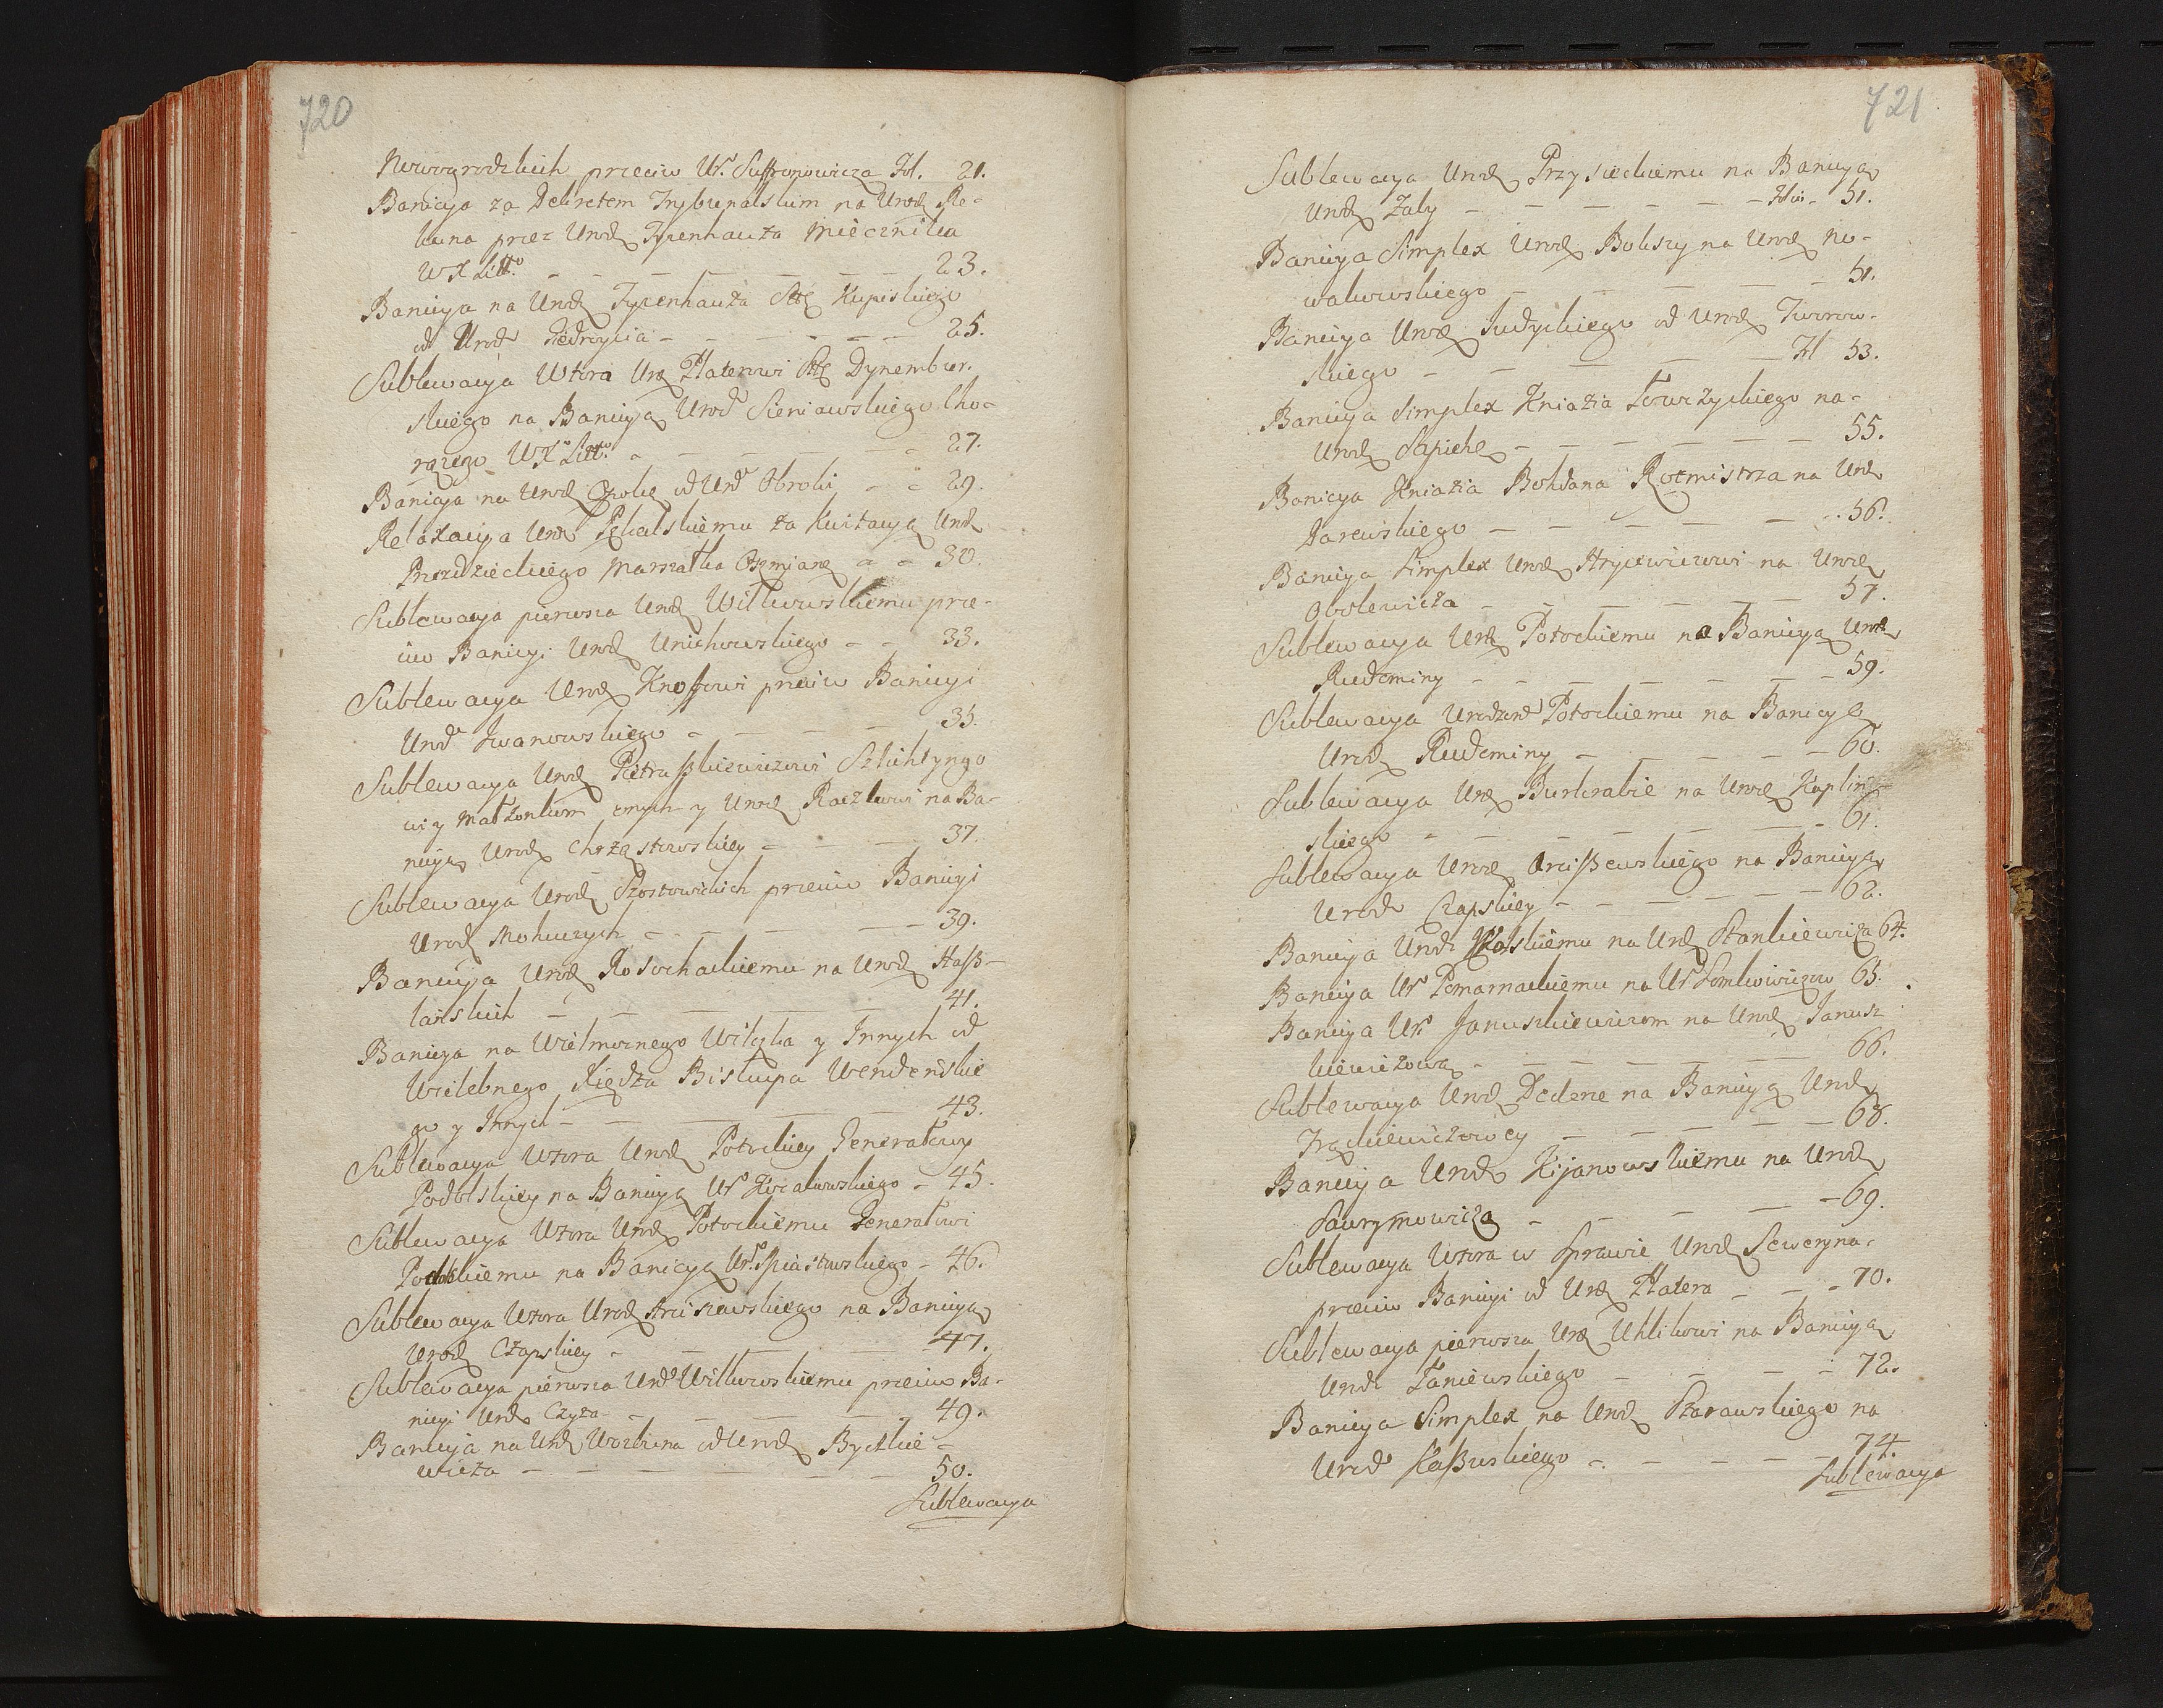 720
Nowogrodzkich przeciw Ur. Suffronowicza Fol. 21.
Banicya za Dekretem Trybunalskim na Urodz Re-
kuna przez Urodz Tyzenhauza Miecznika
W X Litt° - - - - - - 23.
Banicya na Urodz Tyzenhauza Sttę Kupiskiego
od Urod Giedroycia - - - - - 25.
Sublewacya Wtora Urę Platerowi Sttę Dynembur-
skiego na Banicyą Urod Sieniawskiego Cho-
rążego W X° Litt° - - - - - 27.
Banicya na Urodz od Urd Obroki - - 29.
Relaxacya Urdz Pękalskiemu za Kwitacyą Urdz
Przezdzieckiego Marszałka Oszmianę - - 30.
Sublewacya pierwsza Urodz Witkowskiemu prze-
ciw Banicyi Urodz Unichowskiego - - 33.
Sublewacya Urodz Knossowi przeciw Banicyi
Urod Iwanowskiego - - - - 35.
Sublewacya Urodz Pietraszkiewiczowi Szlichtyngo
wi y Małżonkom onych y Urodz Raczkowi na Ba-
nicyą Urodz Chrząstowskiey - - - 37.
Sublewacya Urodz Szostowickich przeciw Banicyi
Urodz Mohuczych - - - - - 39.
Banicyja Urodz Rosochackiemu na Urodz Hasz-
lariskich - - - - - 41.
Banicya na Wielmoznego Wilczka y Innych od
Wielebnego Xiędza Biskupa Wendenskie
go y Innych - - - - - 43.
Sublewacya Wtora Urodz Potockiey Generałowy
Podolskiey na Banicyą Ur° Koralewskiego - 45.
Sublewacya Wtora Urodz Potockiemu Generałowi
Podolskiemu na Banicyą Ur° Spiastowskiego - 46.
Sublewacya Wtora Urodz Arciszewskiego na Banicyą
Urodz Czapskiey - - - - - 47.
Sublewacya pierwsza Urd° Witkowskiemu przeciw Ba-
nicyi Urdz Czyża - - - - - 49.
Banicyja na Urdz Wozbuna od Urodz Byczkie-
wicza - - - - - - 50.
Sublewacya
721
Sublewacya Urodz Przysieckiemu na Banicyą
Urodz Zaby - - - - - - Fol. 51.
Banicya Simplex Urodz Bokszy na Urodz No-
wakowskiego - - - - - 51.
Banicya Urodz Judyckiego od Urodz Tworow-
skiego - - - - Fol 53.
Banicya Simplex Kniazia Łowczyckiego na-
Urodz Sapiehę - - - - - 55.
Banicya Kniazia Bohdana Rotmistrza na Urdz
Darewskiego - - - - - 56.
Banicya Simplex Urodz Hrycewiczowi na Urodz
Obolewicza - - - - - - 57.
Sublewacya Urdz Potockiemu na Banicyą Urodz
Rudominy - - - - - - 59.
Sublewacya Urodzond Potockiemu na Banicye
Urodz Rudominy - - - - 60.
Sublewacya Urę Burkrabie na Urodz Kaplin-
skiego - - - - - - 61.
Sublewacya Urodz Arciszewskiego na Banicyą
Urodz Czapskiey - - - - - 62.
Banicya Urodz Wolskiemu na Urdz Stankiewicza 64.
Banicya Ur° Pomarnackiemu na Ur° Somkowiczow 65.
Banicya Ur° Januszkiewiczom na Urodz Janusz
kiewiczową - - - - - 66.
Sublewacya Urod Dederce na Banicyą Urodz
Frąckiewiczowey - - - - - 68.
Banicya Urodz Kijanowskiemu na Urodz
Ławrynowicza - - - - - 69.
Sublewacya Wtora w Sprawie Urodz Seweryna-
przeciw Banicyi od Urdz Platera - - - 70.
Sublewacya pierwsza Urę Uklikowi na Banicyą
Urodz Zaniewskiego - - - - 72.
Banicya Simplex na Urodz Szarawskiego na
Urod Kaszuskiego - - - - 74.
Sublewacya